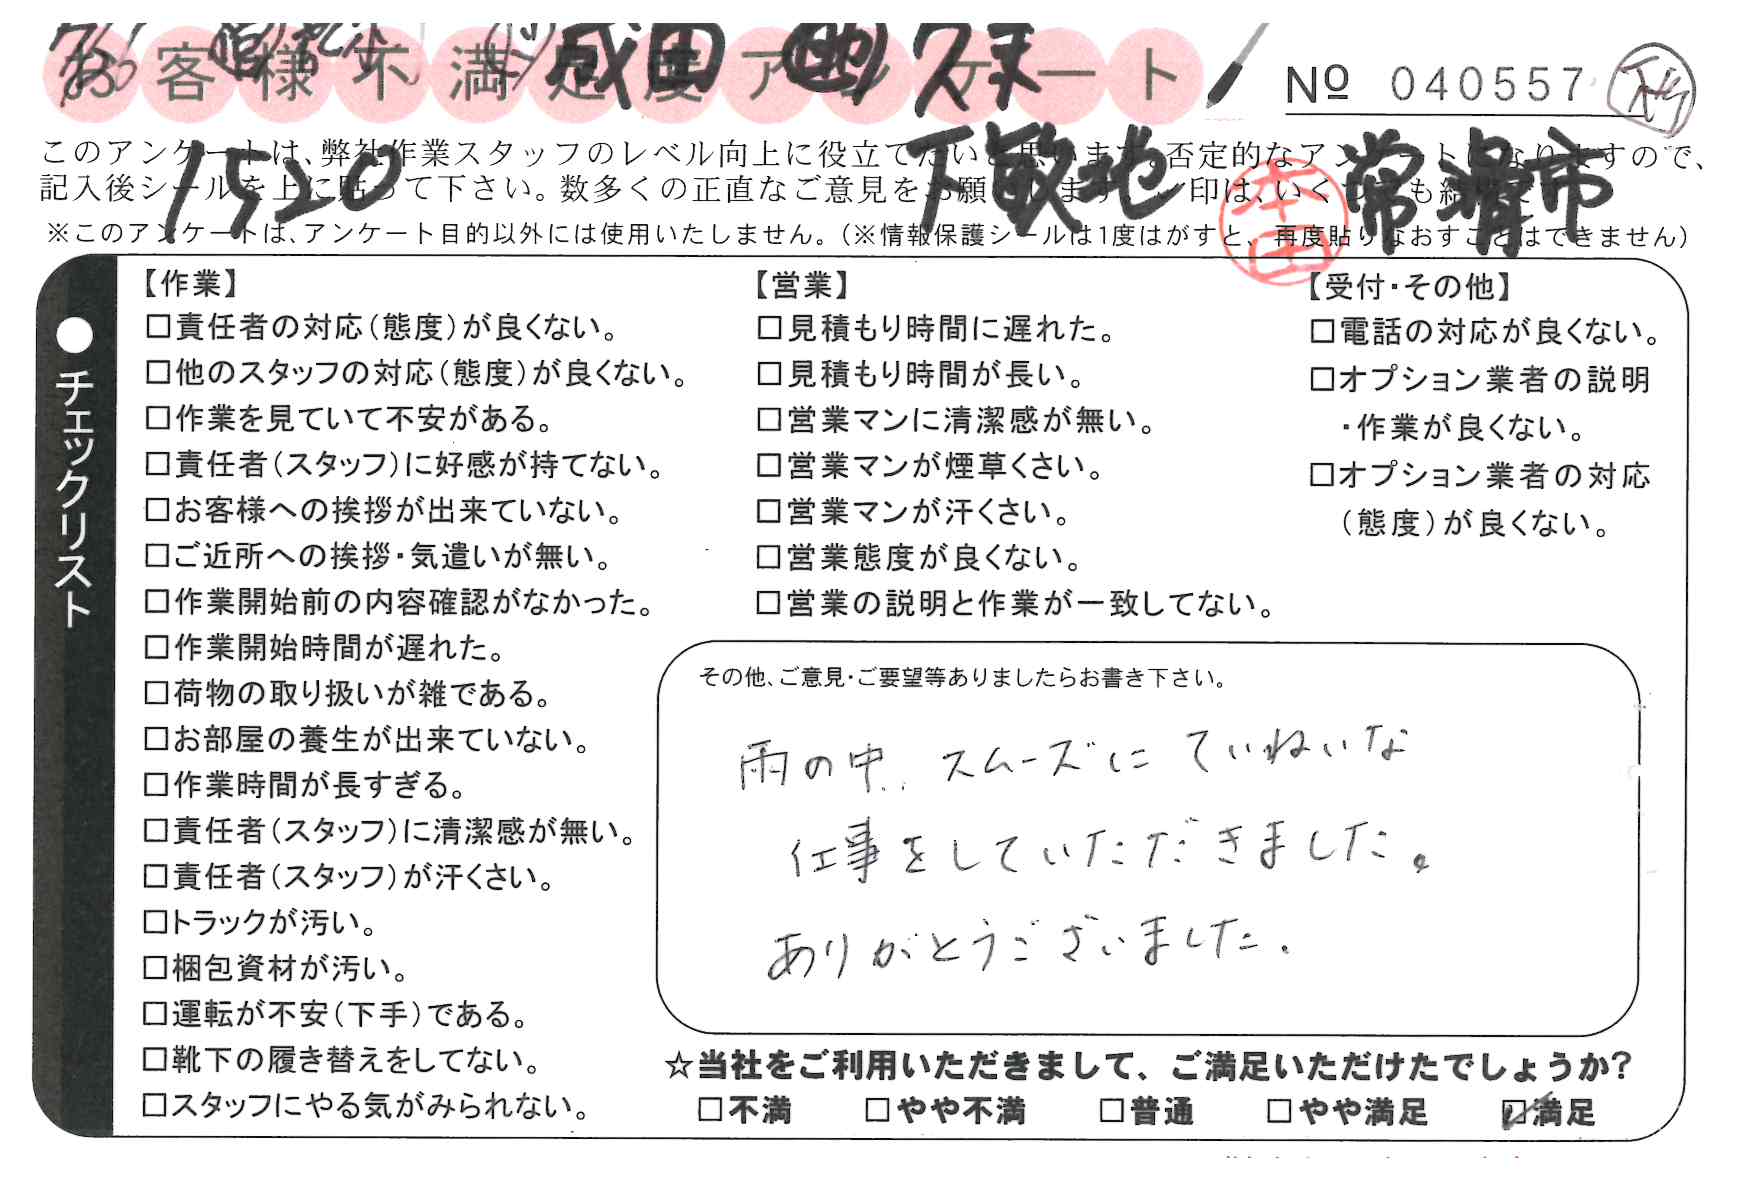 お客様不満足度アンケート
成田
久末
№ 040557
このアンケートは、弊社作業スタッフのレベル向上に役立てたいと思います。否定的なアンケートになりますので、
記入後シールを上に貼って下さい。数多くの正直なご意見をお願いします。レ印は、いくつでも結構です。
1520
下敷地
本田
常滑市
※このアンケートは、アンケート目的以外には使用いたしません。(※情報保護シールは1度はがすと、再度貼りなおすことはできません)
●チェックリスト
【作業】
□責任者の対応(態度)が良くない。
□他のスタッフの対応(態度)が良くない。
□作業を見ていて不安がある。
□責任者(スタッフ)に好感が持てない。
□お客様への挨拶が出来ていない。
□ご近所への挨拶・気遣いが無い。
□作業開始前の内容確認がなかった。
□作業開始時間が遅れた。
□荷物の取り扱いが雑である。
□お部屋の養生が出来ていない。
□作業時間が長すぎる。
□責任者(スタッフ)に清潔感が無い。
□責任者(スタッフ)が汗くさい。
□トラックが汚い。
□梱包資材が汚い。
□運転が不安(下手)である。
□靴下の履き替えをしてない。
□スタッフにやる気がみられない。
【営業】
□見積もり時間に遅れた。
□見積もり時間が長い。
□営業マンに清潔感が無い。
□営業マンが煙草くさい。
□営業マンが汗くさい。
□営業態度が良くない。
□営業の説明と作業が一致してない。
【受付・その他】
□電話の対応が良くない。
□オプション業者の説明
・作業が良くない。
□オプション業者の対応
(態度)が良くない。
その他、ご意見・ご要望等ありましたらお書き下さい。
雨の中、スムーズにていねいな
仕事をしていただきました。
ありがとうございました。
☆当社をご利用いただきまして、ご満足いただけたでしょうか?
□不満 □やや不満 □普通 □やや満足 ☑満足